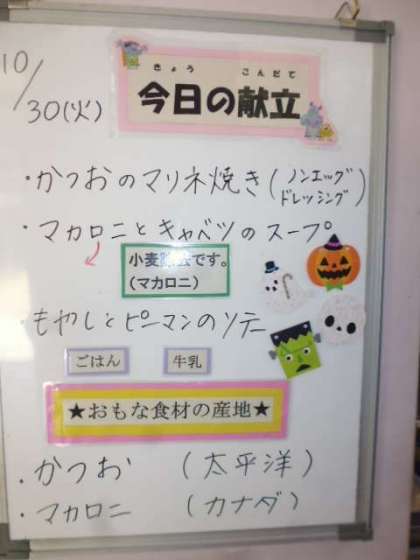 10/30(火)
きょう こんだて
今日の献立
・かつおのマリネ焼き(ノンエッグドレッシング)
・マカロニとキャベツのスープ
小麦除去です。
(マカロニ)
・もやしとピーマンのソテー
ごはん 牛乳
★おもな食材の産地★
・かつお (太平洋)
・マカロニ (カナダ)